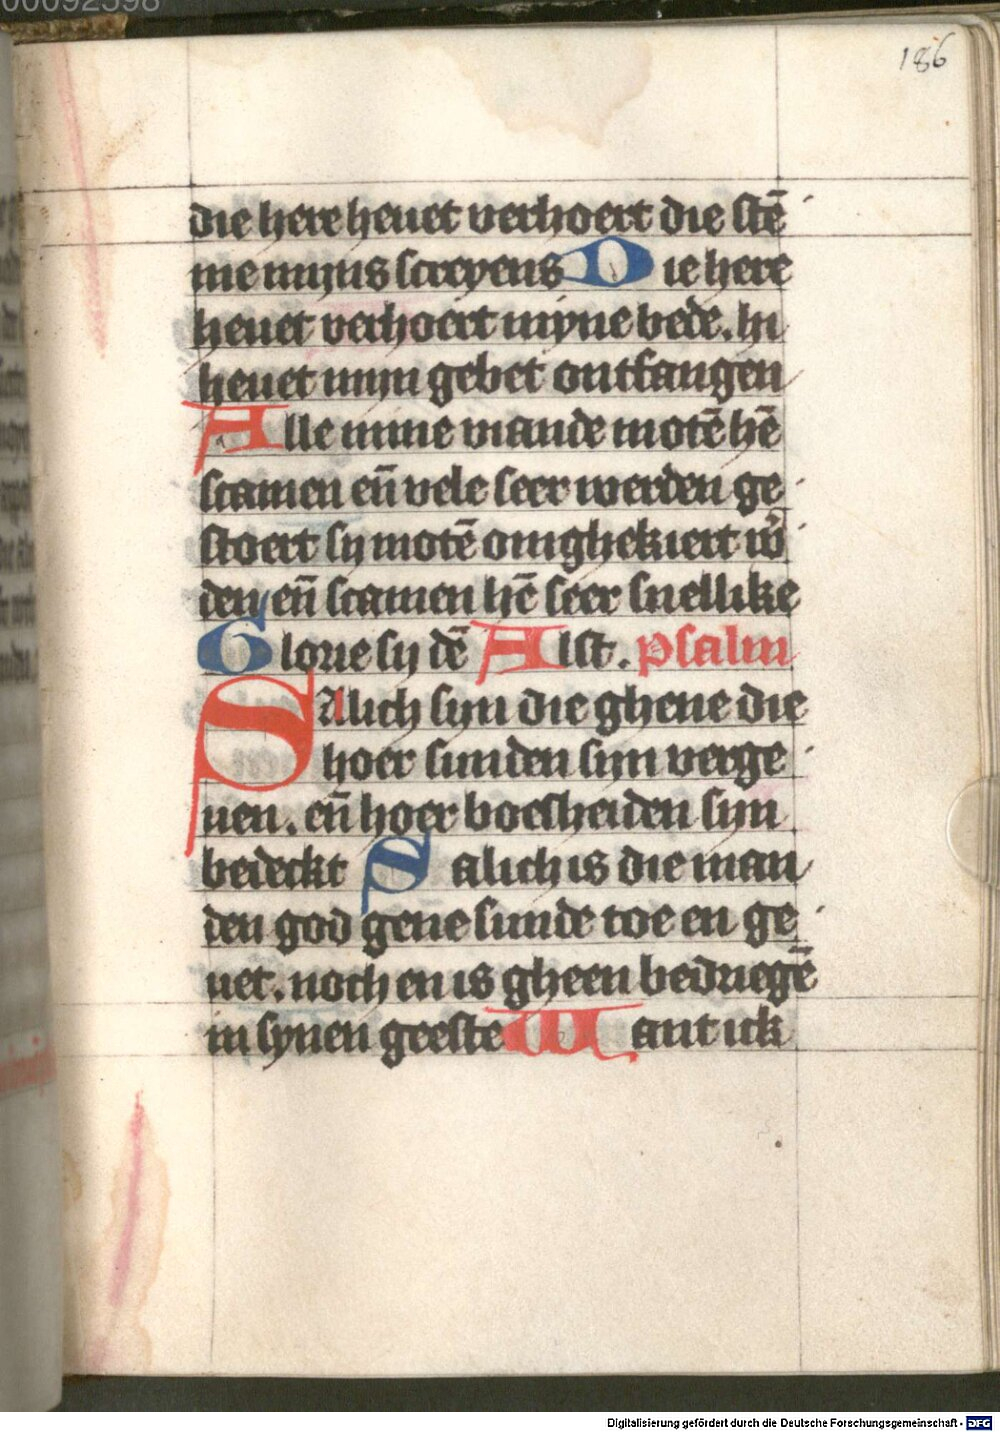 00092598
186
die here heuet verhoert die stē
me mijns screyens Die here
heuet verhoert myne bede. hi
heuet mijn gebet ontfangen
Alle mine viande motē hē
scamen eñ vele seer werden ge
stoert sij motē omghekiert w̄
den eñ scamen hē seer snellike
Glorie sij dē Alst. psalm
Salich sijn die ghene die
hoer sunden sijn verge
uen. eñ hoer boesheiden sijn
bedeckt Salich is die man
den god gene sunde toe en ge
uet. noch en is gheen bedriegē
in synen geeste Want ick
Digitalisierung gefördert durch die Deutsche Forschungsgemeinschaft - DFG